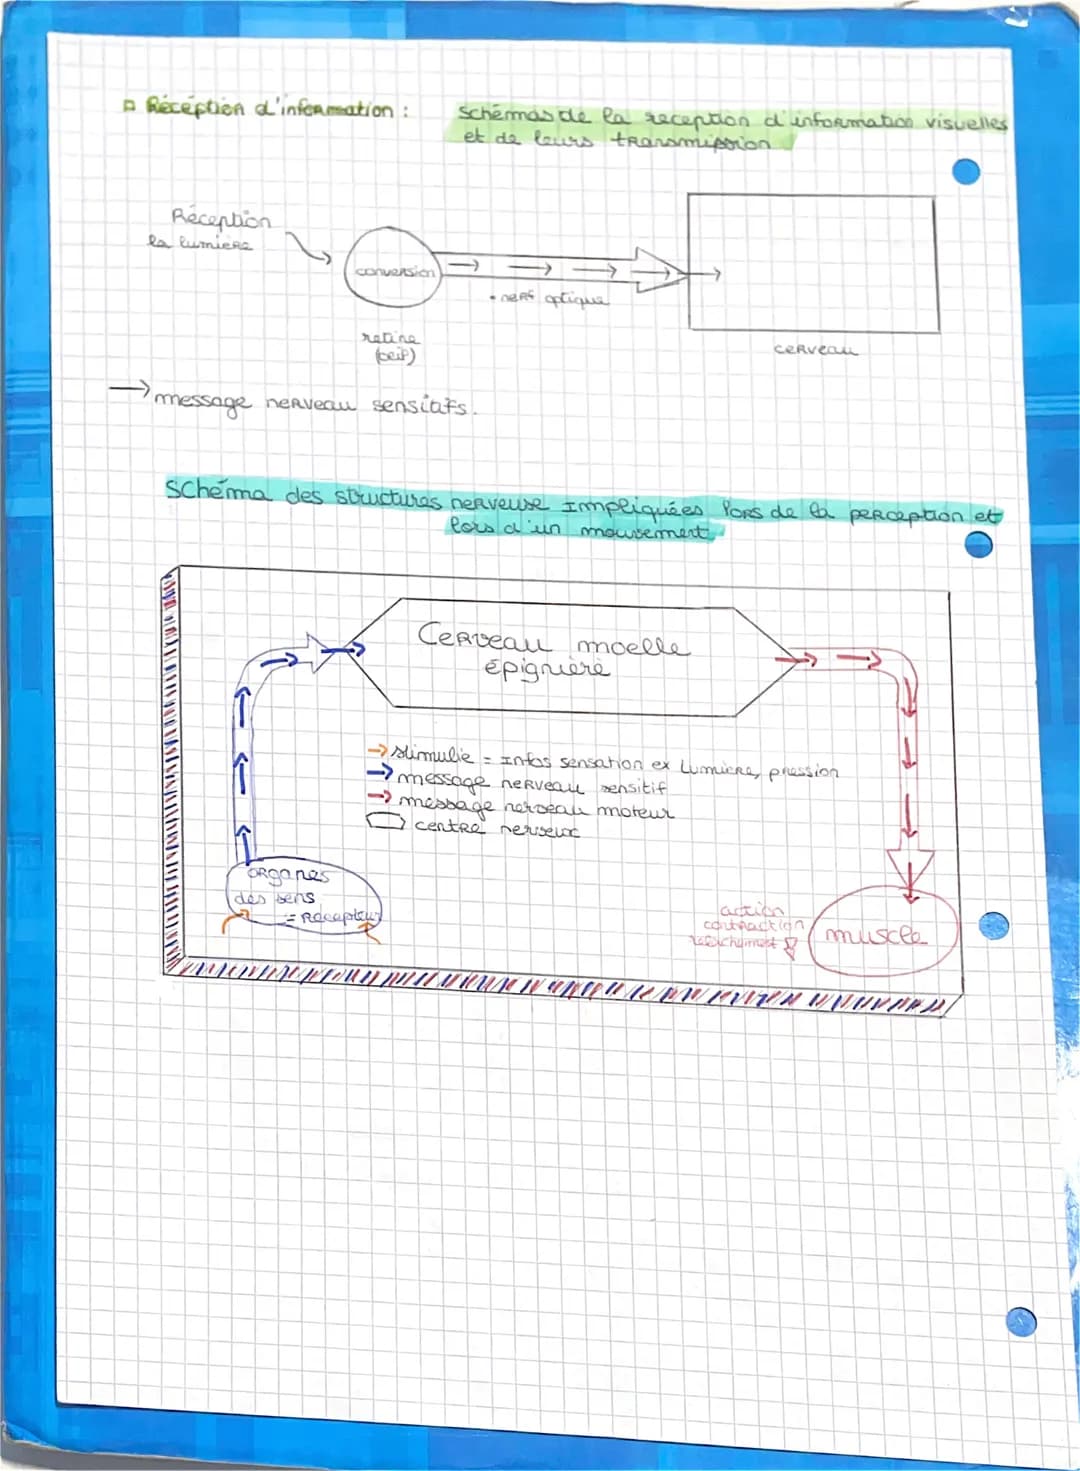 Réception d'information :
schémas de la reception d'information visuelles
et de leurs transmission
Réception
la lumiere
conversion
• nerf optique
retine
(oeil)
cerveau
→ message nerveau sensiatfs.
Schéma des structures nerveuse impliquées lors de la perception et
lors d'un mouvement
Cerveau moelle
épignière
→ stimulie = Infos sensation ex Lumiere, pression
→ message nerveau sensitif
→ message nerveau moteur
centre nerveux
organes
des sens
= Récepteur
action
contraction
muscle